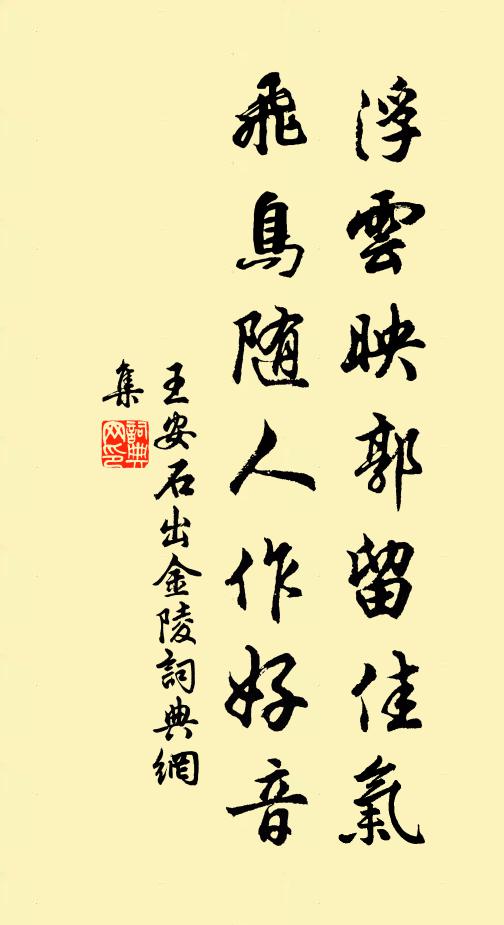 浮雲映郭留佳氣
飛鳥随人作好音
王安石出金陵詞典網
集
詞典網印